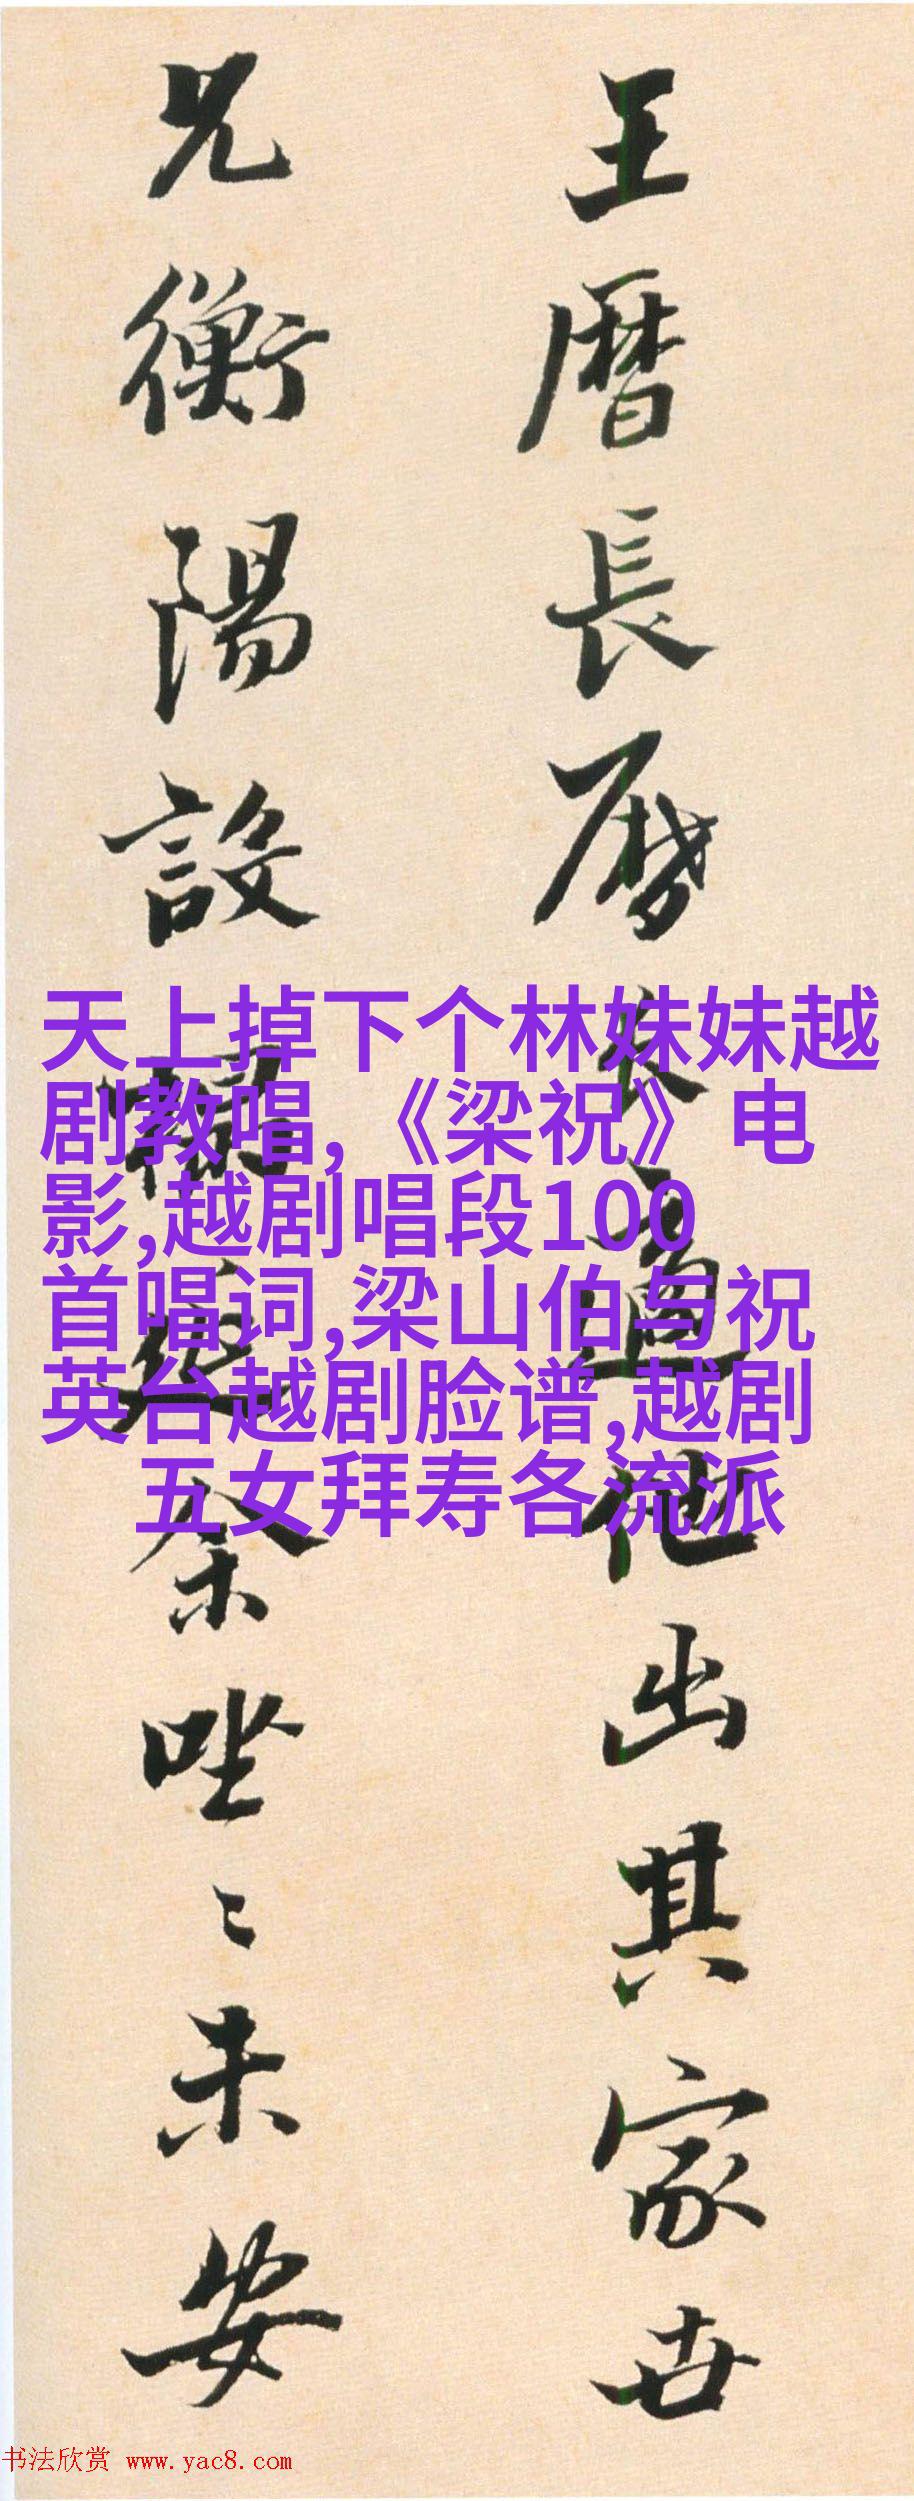 王曆長適他出其家世
兄衡陽設祭唑〻未安
天上掉下个林妹妹越
剧教唱,《梁祝》 电
影,越剧唱段100
首唱词,梁山伯与祝
英台越剧脸谱,越剧
五女拜寿各流派
书法欣赏 www.yac8.com